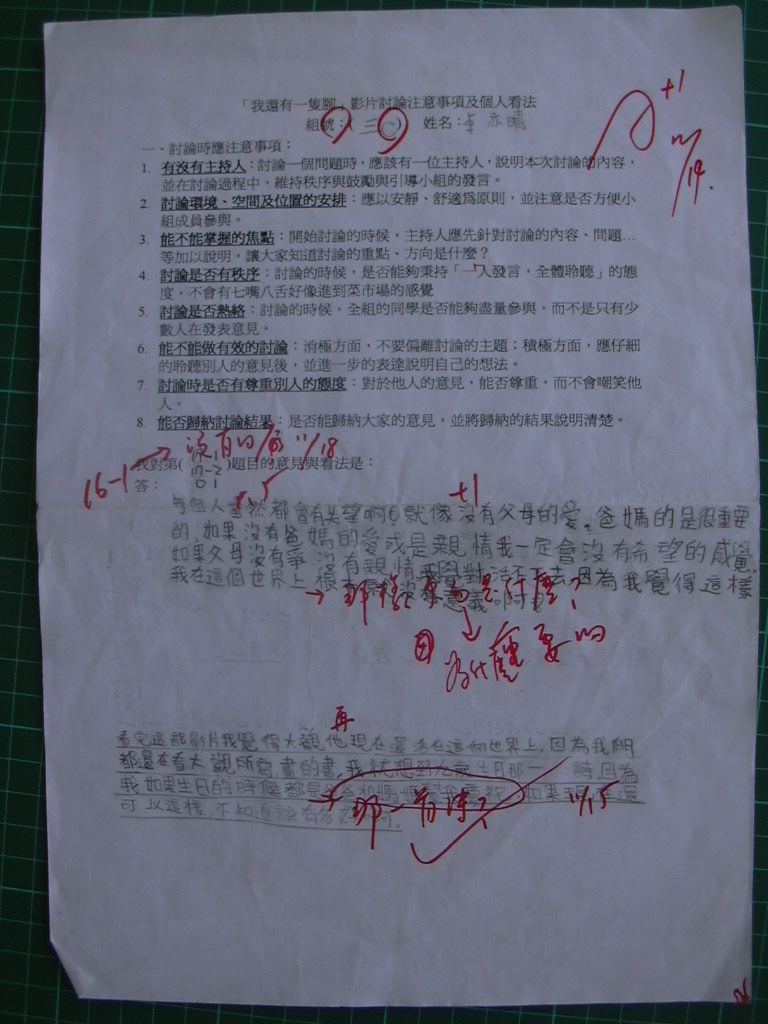 「我還有一隻腳」影片討論注意事項及個人看法
組號：( 三 ) 姓名：李亦晴
+1
11/19.
一、討論時應注意事項：
1. 有沒有主持人：討論一個問題時，應該有一位主持人，說明本次討論的內容，
並在討論過程中，維持秩序與鼓勵與引導小組的發言。
2. 討論環境、空間及位置的安排：應以安靜、舒適為原則，並注意是否方便小
組成員參與。
3. 能不能掌握的焦點：開始討論的時候，主持人應先針對討論的內容、問題…
等加以說明，讓大家知道討論的重點、方向是什麼？
4. 討論是否有秩序：討論的時候，是否能夠秉持「一人發言，全體聆聽」的態
度，不會有七嘴八舌好像進到菜市場的感覺
5. 討論是否熱絡：討論的時候，全組的同學是否能夠盡量參與，而不是只有少
數人在發表意見。
6. 能不能做有效的討論：消極方面，不要偏離討論的主題；積極方面，應仔細
的聆聽別人的意見後，並進一步的表達說明自己的想法。
7. 討論時是否有尊重別人的態度：對於他人的意見，能否尊重，而不會嘲笑他
人。
8. 能否歸納討論結果：是否能歸納大家的意見，並將歸納的結果說明清楚。
11/18
16-1
我對第( )題目的意見與看法是：
17-2
答：
+1
每個人當然都會有失望啊！就像沒有父母的愛。爸媽的是很重要
的，如果沒有爸媽的愛或是親情我一定會沒有希望的感覺。
如果父母沒有爭 沒有親情我絕對活不下去，因為我覺得這樣
我在這個世界上根本 沒 意義啊！
那 是什麼？
為什麼 要的
再
看完這部影片我覺得大觀他現在還活在這個世界上，因為我們
都還在看大觀所寫，畫的書，我就想到九歲生日那一 詩，因為
我如果生日的時候都是 爸和媽媽 如果 還
可以這樣，不知道該有多
那一首詩？
11/15